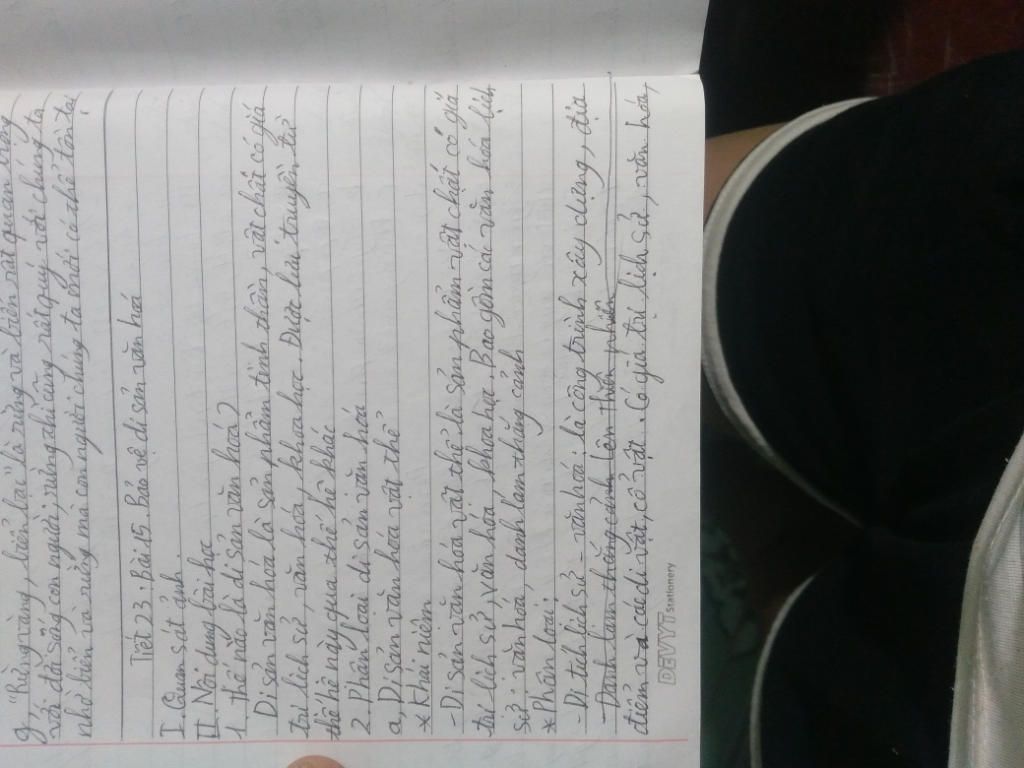 g, "Rừng vàng, biển bạc" là rừng và biển rất quan trọng
với đời sống con người, rừng thì cũng rất quý với chúng ta
nhờ biển và rừng mà con người chúng ta mới có thể tồn tại
Tiết 23. Bài 15. Bảo vệ di sản văn hoá
I. Quan sát ảnh.
II. Nội dung bài học
1. thế nào là di sản văn hoá?
Di sản văn hoá là sản phẩm tinh thần, vật chất có giá
trị lịch sử, văn hoá, khoa học. Được lưu truyền từ
thế hệ này qua thế hệ khác
2. Phân loại di sản văn hoá
a, Di sản văn hóa vật thể
* Khái niệm
- Di sản văn hóa vật thể là sản phẩm vật chất có giá
trị lịch sử, văn hóa, khoa học. Bao gồm các văn hóa lịch
sử văn hoá, danh lam thắng cảnh
* Phân loại:
- Di tích lịch sử - văn hóa: là công trình xây dựng, địa
- Danh lam thắng cảnh thiên nhiên
điểm và các di vật, cổ vật. Có giá trị lịch sử, văn hóa,
DEVYT Stationery